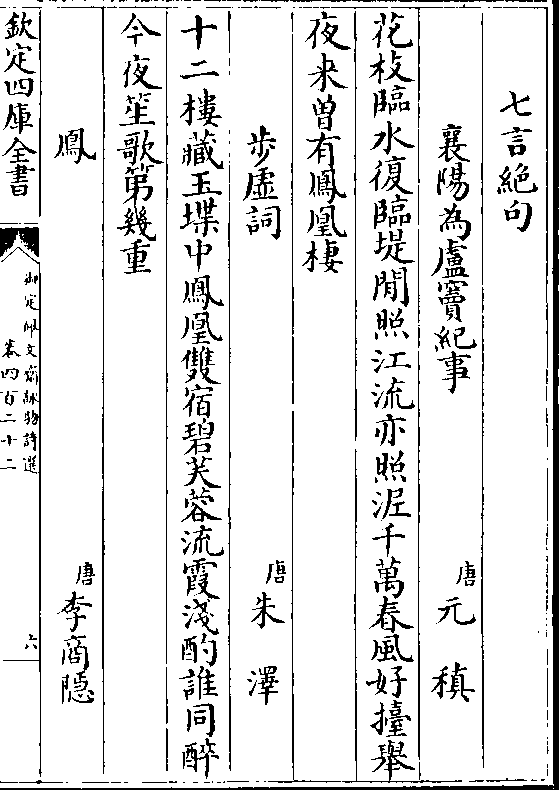 七言絶句
襄陽為盧竇紀事
唐
元稹
花枝臨水復臨堤閒照江流亦照泥千萬春風好擡舉
夜来曽有鳳凰棲
歩虚詞
唐
朱澤
十二樓藏玉堞中鳳凰雙宿碧芙蓉流霞淺酌誰同醉
今夜笙歌第幾重
鳳
唐
李商隠
欽定四庫全書
御定佩文齋詠物詩選
卷四百二十二
六